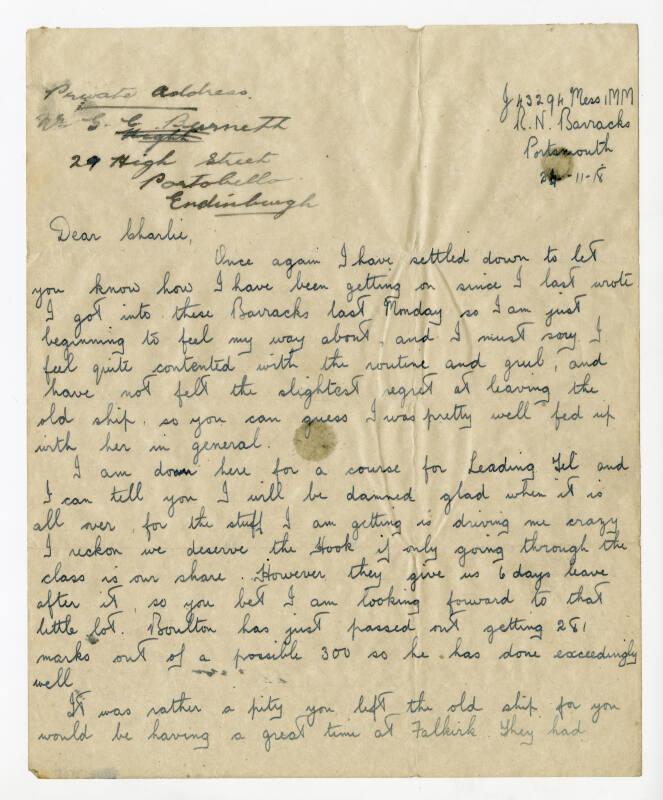 Private Address.
Mr G. C. Burnett
29 High Street
Portobello
Endinburgh
J 43294 Mess 1MM
R. N. Barracks
Portsmouth
24-11-18
Dear Charlie,
Once again I have settled down to let
you know how I have been getting on since I last wrote
I got into these Barracks last Monday so I am just
beginning to feel my way about, and I must say I
feel quite contented with the routine and grub, and
have not felt the slightest regret at leaving the
old ship, so you can guess I was pretty well fed up
with her in general.
I am down here for a course for Leading Tel and
I can tell you I will be damned glad when it is
all over, for the stuff I am getting is driving me crazy
I reckon we deserve the Hook if only going through the
class is our share. However they give us 6 days leave
after it, so you bet I am looking forward to that
little lot. Boulton has just passed out getting 281
marks out of a possible 300 so he has done exceedingly
well.
It was rather a pity you left the old ship for you
would be having a great time at Falkirk. They had